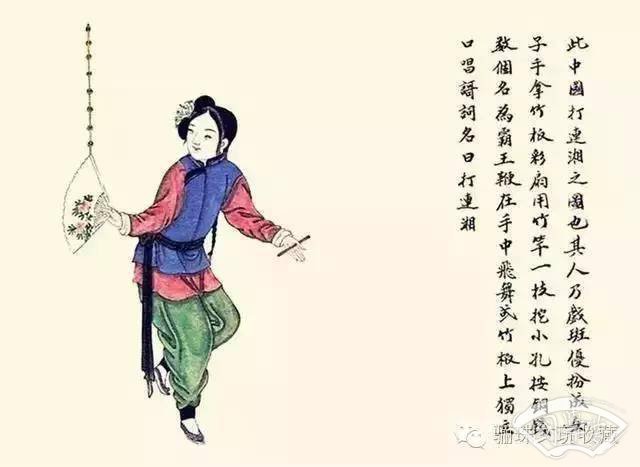 此中國打連湘之圖也其人乃戲班優扮成女
子手拿竹板彩扇用竹竿一枝挖小孔按銅錢
數個名為霸王鞭在手中飛舞或竹板上獨
口唱謌詞名曰打連湘
骊珠文玩收藏